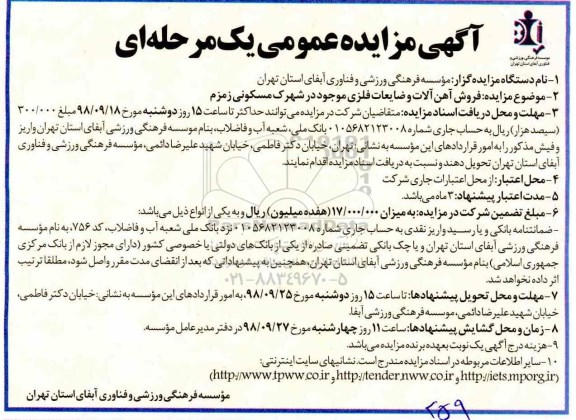 آگهی مزایده عمومی یک مرحله‌ای
موسسه فرهنگی ورزشی و
فناوری آبفای استان تهران
۱-نام دستگاه مزایده‌گزار: مؤسسه فرهنگی ورزشی و فناوری آبفای استان تهران
۲-موضوع مزایده: فروش آهن آلات و ضایعات فلزی موجود در شهرک مسکونی زمزم
۳-مهلت و محل دریافت اسناد مزایده: متقاضیان شرکت در مزایده می‌توانند حداکثر تا ساعت ۱۵ روز دوشنبه مورخ ۹۸/۰۹/۱۸ مبلغ ۳۰۰/۰۰۰
(سیصد هزار) ریال به حساب جاری شماره ۰۱۰۵۶۸۲۱۲۳۰۰۸ بانک ملی، شعبه آب و فاضلاب، بنام موسسه فرهنگی ورزشی آبفای استان تهران واریز
و فیش مذکور را به امور قراردادهای این مؤسسه به نشانی: تهران، خیابان دکتر فاطمی، خیابان شهید علیرضا دائمی، مؤسسه فرهنگی ورزشی و فناوری
آبفای استان تهران تحویل دهند و نسبت به دریافت اسناد مزایده اقدام نمایند.
۴-محل اعتبار: از محل اعتبارات جاری شرکت
۵-مدت اعتبار پیشنهاد: ۳ ماه می‌باشد.
۶-مبلغ تضمین شرکت در مزایده: به میزان ۱۷/۰۰۰/۰۰۰ (هفده میلیون) ریال و به یکی از انواع ذیل می‌باشد:
-ضمانتنامه بانکی و یا رسید واریز نقدی به حساب جاری شماره ۰۱۰۵۶۸۲۱۲۳۰۰۸ نزد بانک ملی شعبه آب و فاضلاب، کد ۷۵۶، به نام مؤسسه
فرهنگی ورزشی آبفای استان تهران و یا چک بانکی تضمینی صادره از یکی از بانک‌های دولتی یا خصوصی کشور (دارای مجوز لازم از بانک مرکزی
جمهوری اسلامی) بنام مؤسسه فرهنگی ورزشی آبفای استان تهران، همچنین به پیشنهاداتی که بعد از انقضای مدت مقرر واصل شود، مطلقا ترتیب
اثر داده نخواهد شد.
۰۲۱-۸۸۳۴۹۶۷۰-۵
۷-مهلت و محل تحویل پیشنهادها: تا ساعت ۱۵ روز دوشنبه مورخ ۹۸/۰۹/۲۵، به امور قراردادهای این مؤسسه به نشانی: خیابان دکتر فاطمی،
خیابان شهید علیرضا دائمی، موسسه فرهنگی ورزشی آبفا.
۸-زمان و محل گشایش پیشنهادها: ساعت ۱۱ روز چهارشنبه مورخ ۹۸/۰۹/۲۷ در دفتر مدیر عامل مؤسسه.
۹-هزینه درج آگهی یک نوبت بعهده برنده مزایده می‌باشد.
۱۰-سایر اطلاعات مربوطه در اسناد مزایده مندرج است. نشانیهای سایت اینترنتی:
(http://iets.mporg.ir و http://tender.nww.co.ir و http://www.tpww.co.ir)
مؤسسه فرهنگی ورزشی و فناوری آبفای استان تهران